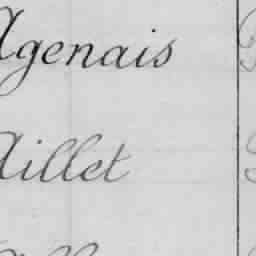 Agenais
Aillet